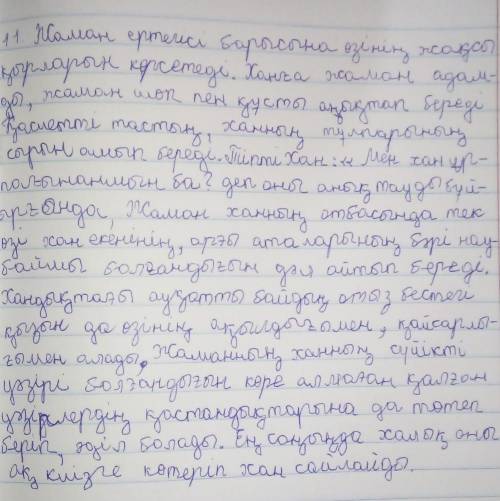 11. Жаман ертегісі барысына өзінің жақсы
қырларын көрсетеді. Ханға жаман адам-
ды, жаман шөп пен құсты анықтап береді
Қасиетті тастың, ханның тұлпарының
сырын ашып береді. Тіпті Хан: „Мен хан ұр-
пағынанмын ба? деп оны анықтауды бұй-
ырғында, Жаман ханның отбасында тек
өзі хан екенінің, арғы аталарының бәрі нау-
байшы болғандығын дәл айтып береді.
Хандықтағы ауқатты байдың отыз бестегі
қызын да өзінің ақылдығымен, қайсарлы-
ғымен алады. Жаманның ханның сүйікті
уәзірі болғандығын көре алмаған қалған
уәзірлердің қастандықтарына да төтеп
беріп, әділ болады. Ең соңында халық оны
ақ киізге көтеріп хан сайлайды.